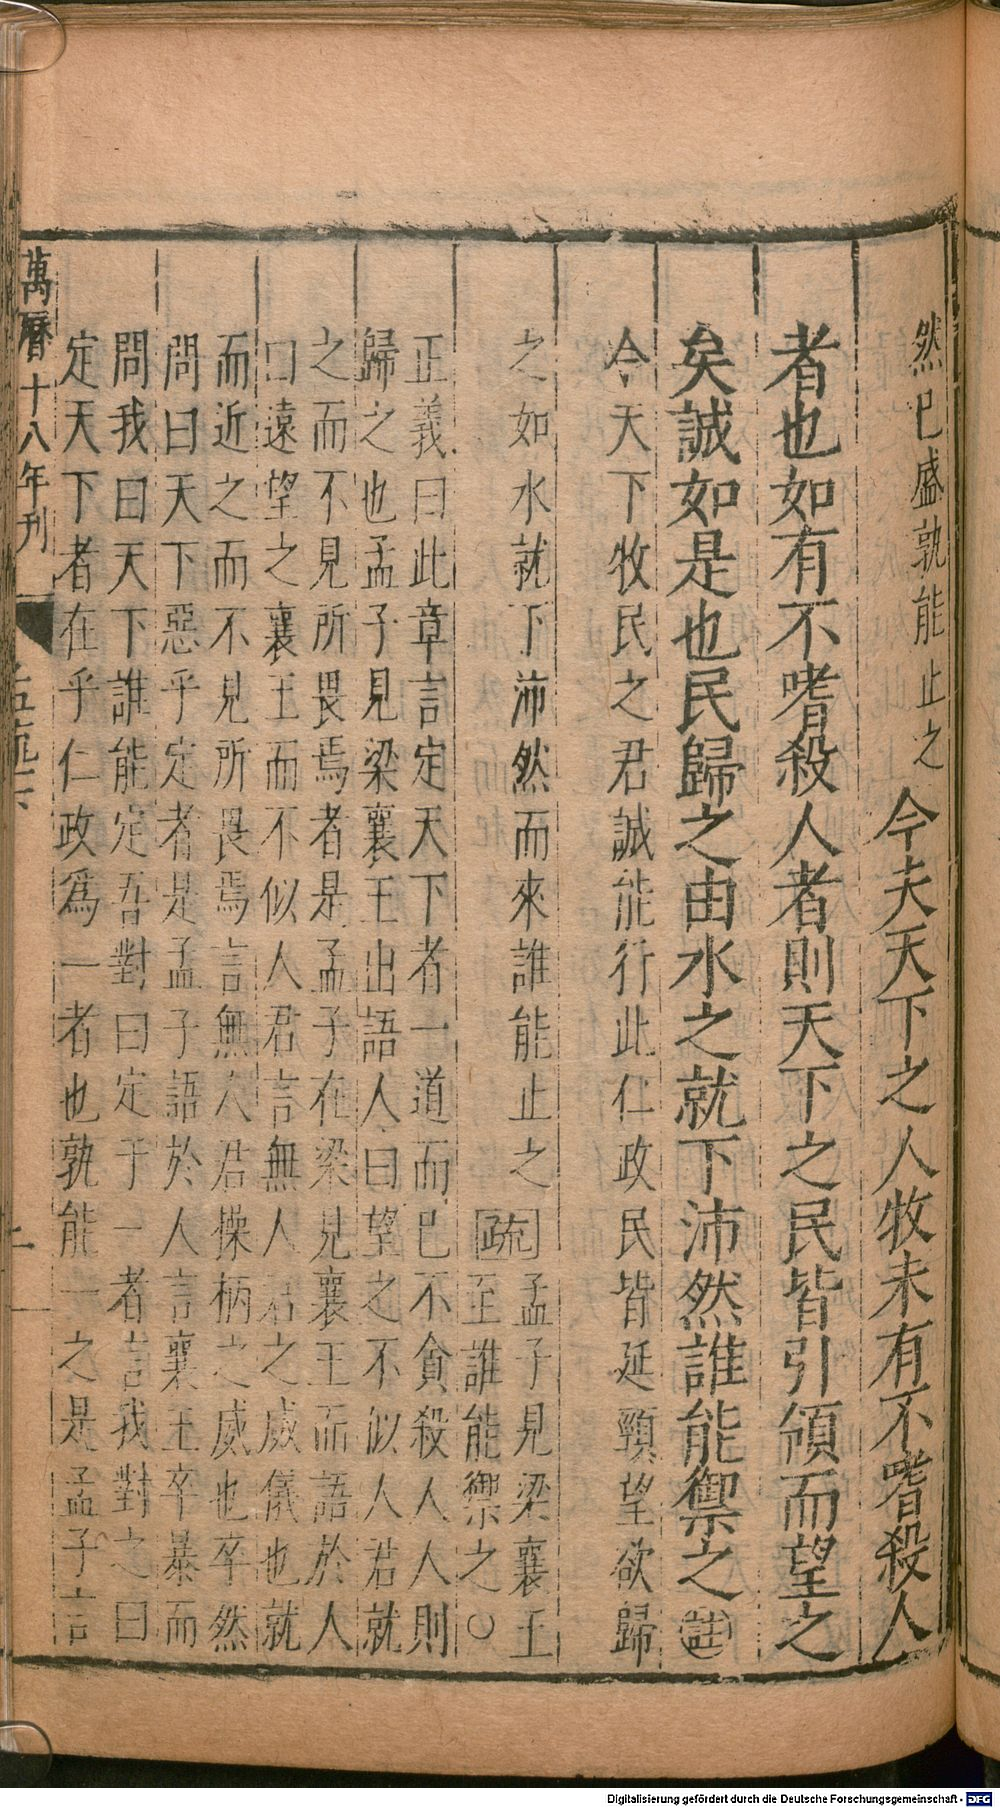 然已盛孰能止之今夫天下之人牧未有不嗜殺人
者也如有不嗜殺人者則天下之民皆引領而望之
矣誠如是也民歸之由水之就下沛然誰能禦之註
今天下牧民之君誠能行此仁政民皆延頸望欲歸
之如水就下沛然而來誰能止之疏孟子見梁襄王
至誰能禦之○
正義曰此章言定天下者一道而已不貪殺人人則
歸之也孟子見梁襄王出語人曰望之不似人君就
之而不見所畏焉者是孟子在梁見襄王而語於人
口遠望之襄王而不似人君言無人君之威儀也就
而近之而不見所畏焉言無人君操柄之威也卒然
問曰天下惡乎定者是孟子語於人言襄王卒暴而
問我曰天下誰能定吾對曰定于一者言我對之曰
定天下者在乎仁政爲一者也孰能一之是孟子言
萬曆十八年刊
Digitalisierung gefördert durch die Deutsche Forschungsgemeinschaft - DFG